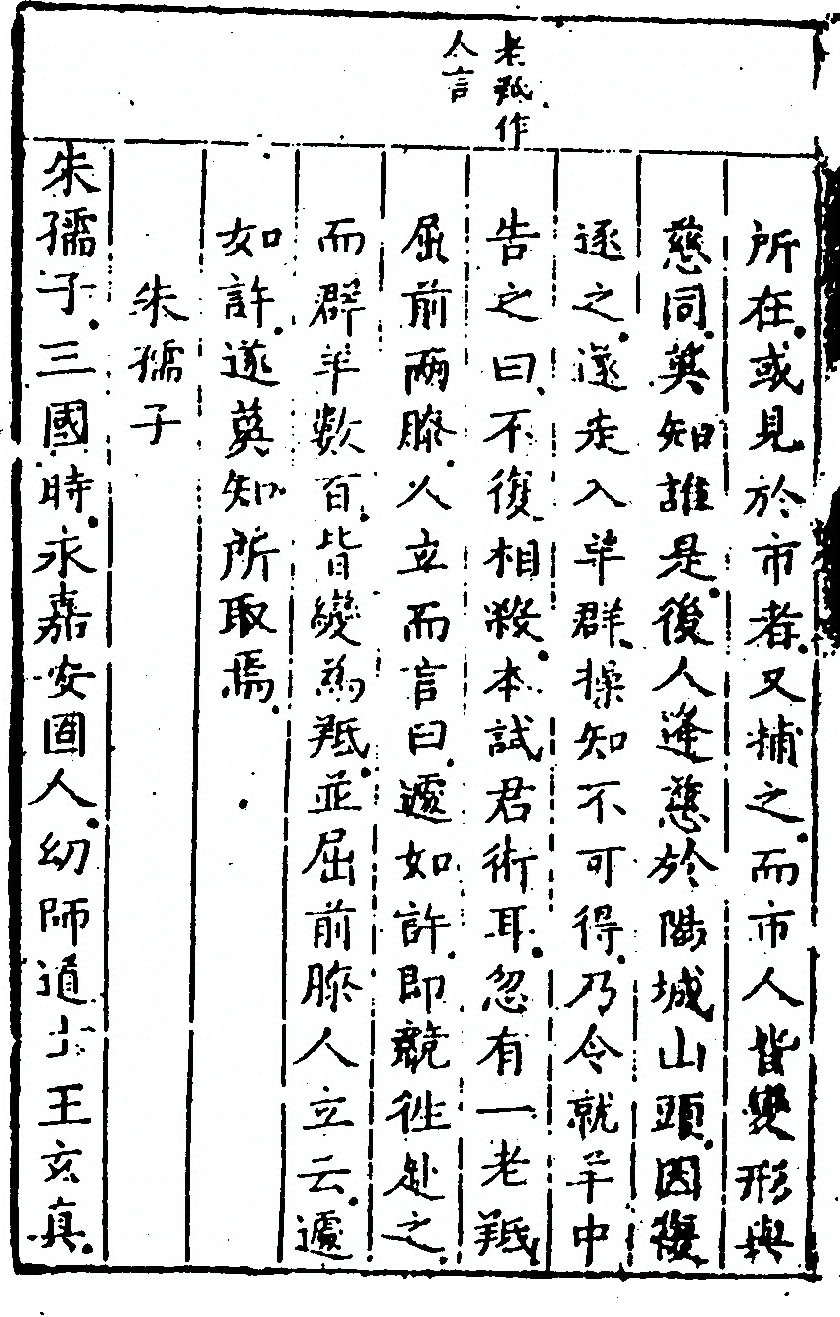 老羝作
人言
所在或見於市者又捕之而市人皆變形與
慈同莫知誰是後人逢慈於陽城山頭因復
逐之遂走入羊群操知不可得乃令就羊中
告之曰不復相殺本試君術耳忽有一老羝
屈前兩膝人立而言曰遽如許即競徃赴之
而群羊數百皆變為羝並屈前膝人立云遽
如許遂莫知所取焉
朱孺子
朱孺子三國時永嘉安固人幼師道士王玄真